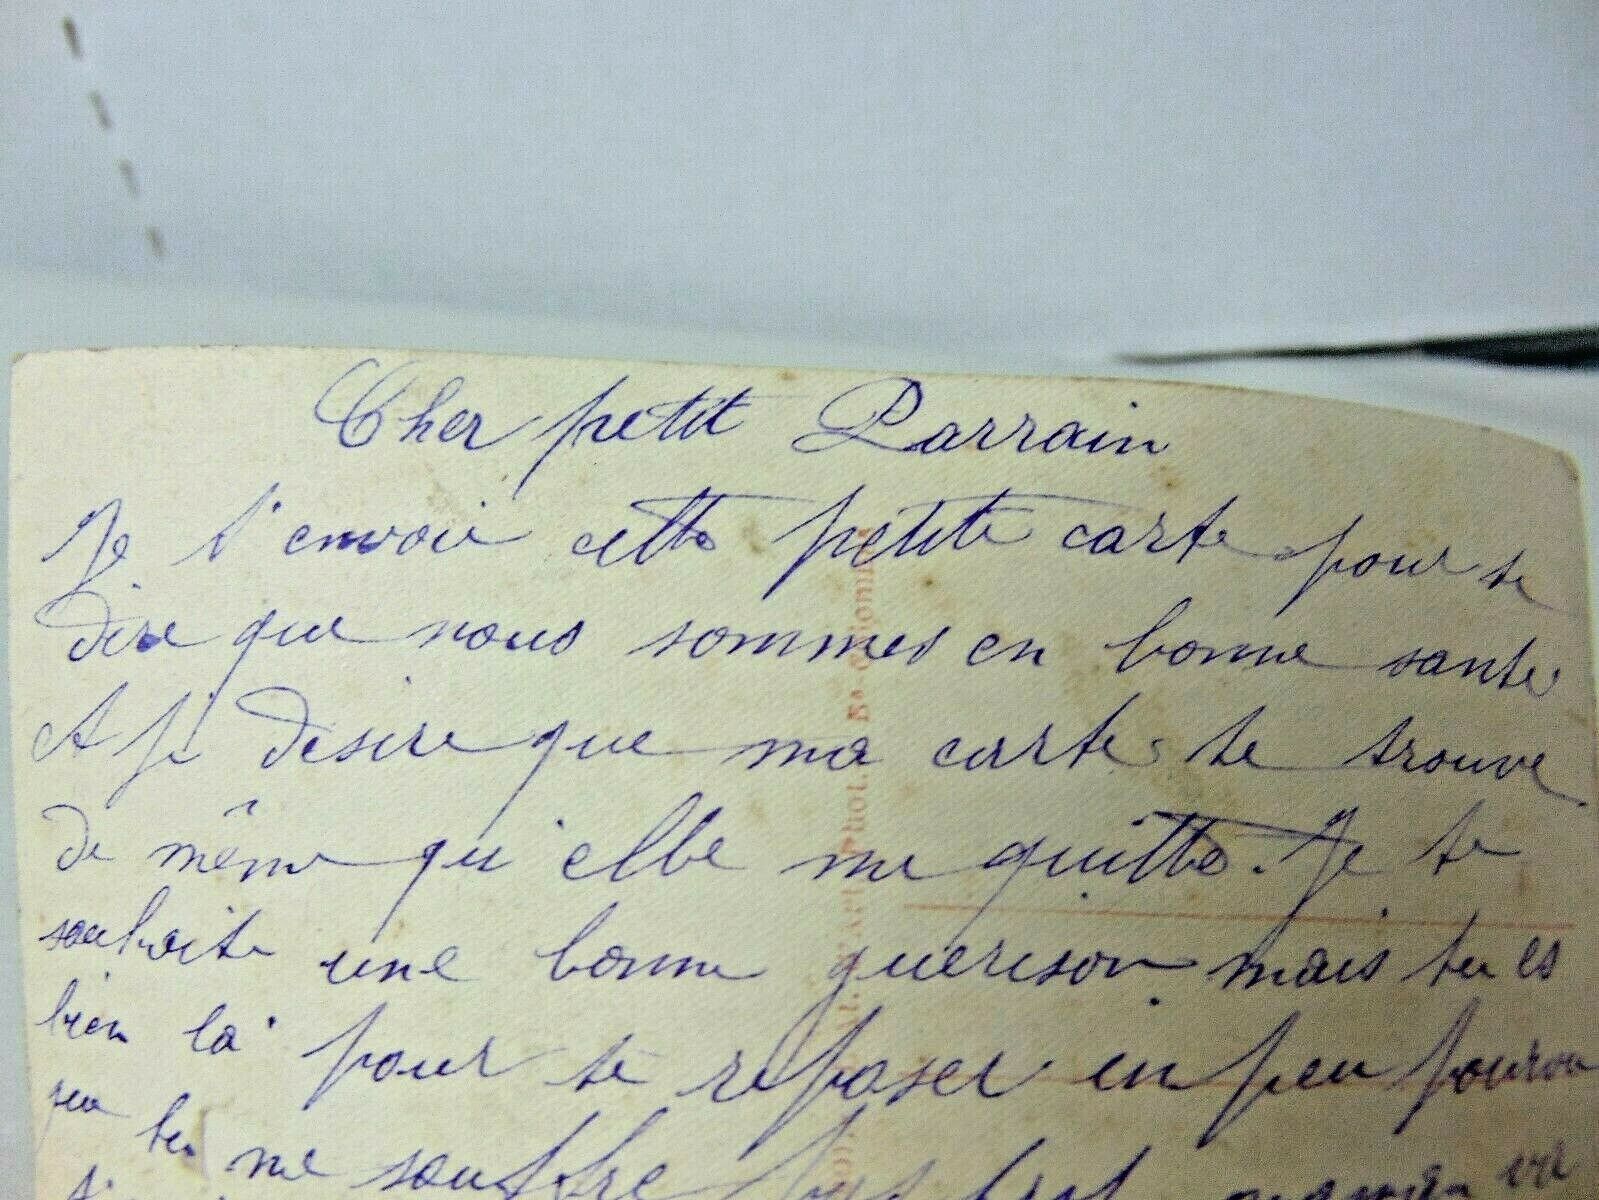 Cher petit Parrain
Je t'envoie cette petite carte pour te
dire que nous sommes en bonne santé
et je désire que ma carte te trouve
de même qu'elle me quitte. Je te
souhaite une bonne guerison mais tu es
bien là pour te reposer un peu pourvu
que tu ne souffre pas